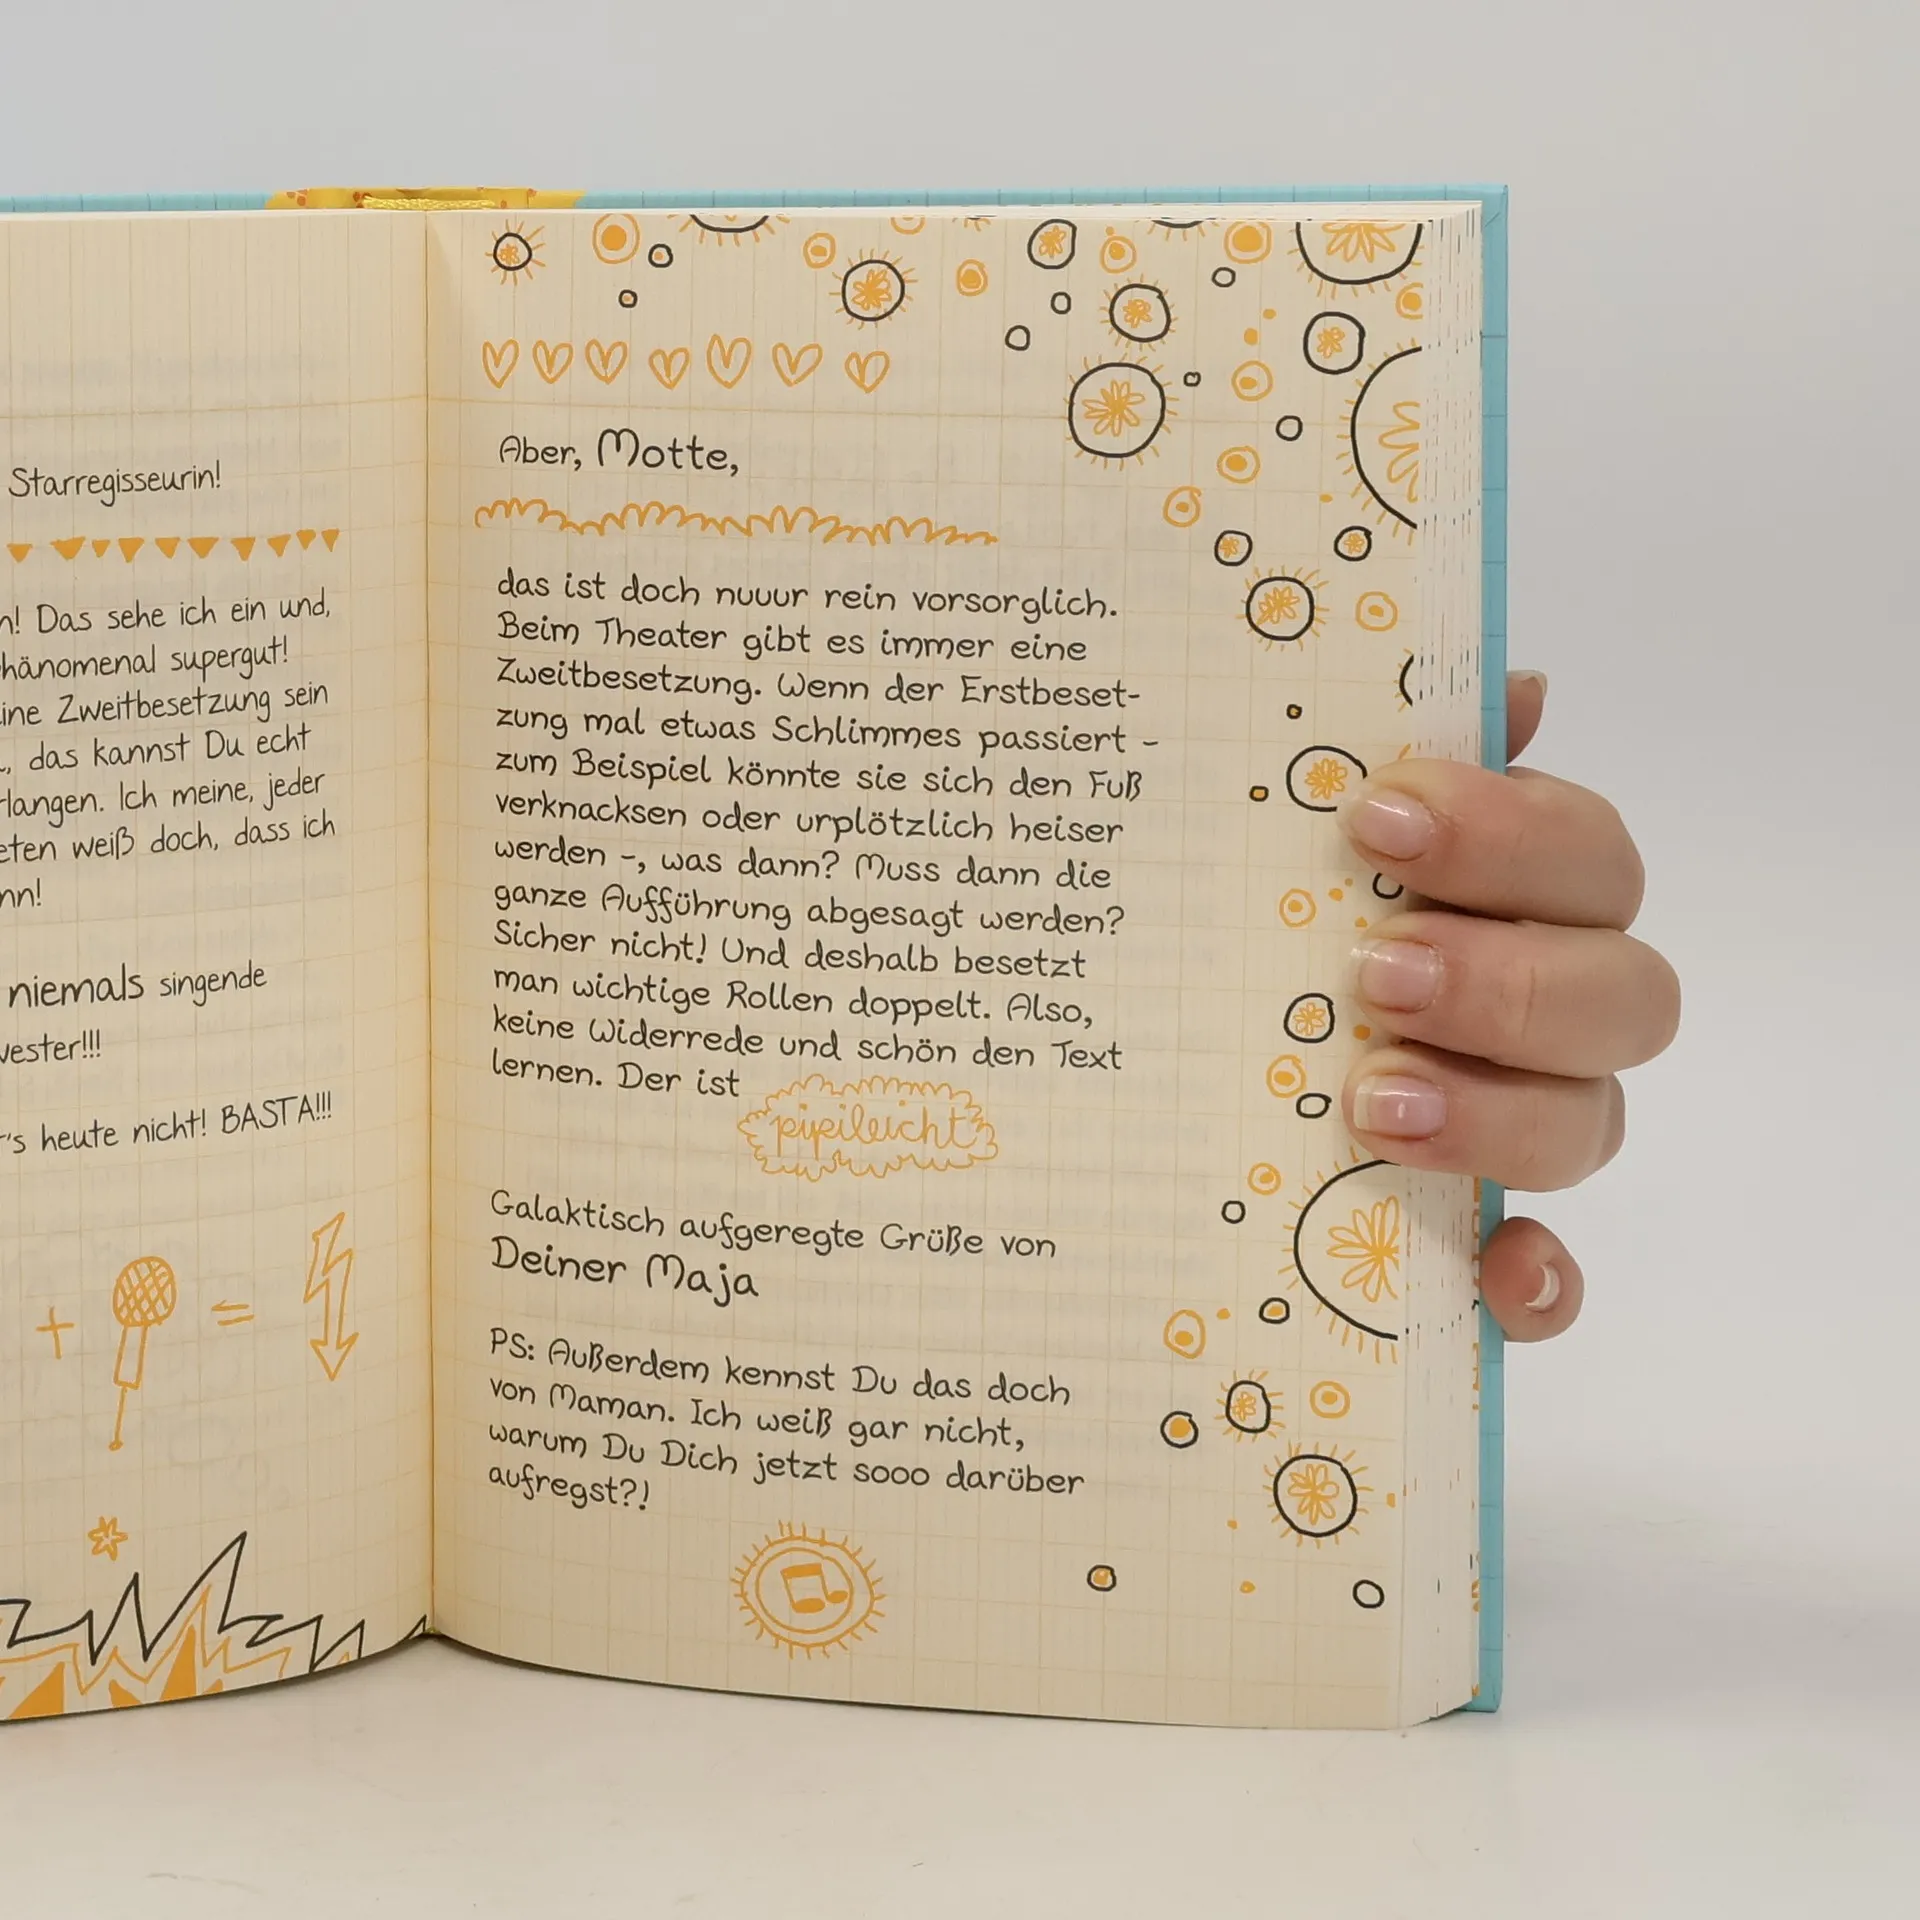 Starregisseurin!
Das sehe ich ein und,
supergut!
Zweitbesetzung sein
das kannst Du echt
Ich meine, jeder
weiß doch, dass ich
niemals singende
heute nicht! BASTA!!!
+ =
Aber, Motte,
das ist doch nuuur rein vorsorglich.
Beim Theater gibt es immer eine
Zweitbesetzung. Wenn der Erstbeset-
zung mal etwas Schlimmes passiert –
zum Beispiel könnte sie sich den Fuß
verknacksen oder urplötzlich heiser
werden –, was dann? Muss dann die
ganze Aufführung abgesagt werden?
Sicher nicht! Und deshalb besetzt
man wichtige Rollen doppelt. Also,
keine Widerrede und schön den Text
lernen. Der ist
pipileicht
Galaktisch aufgeregte Grüße von
Deiner Maja
PS: Außerdem kennst Du das doch
von Maman. Ich weiß gar nicht,
warum Du Dich jetzt sooo darüber
aufregst?!